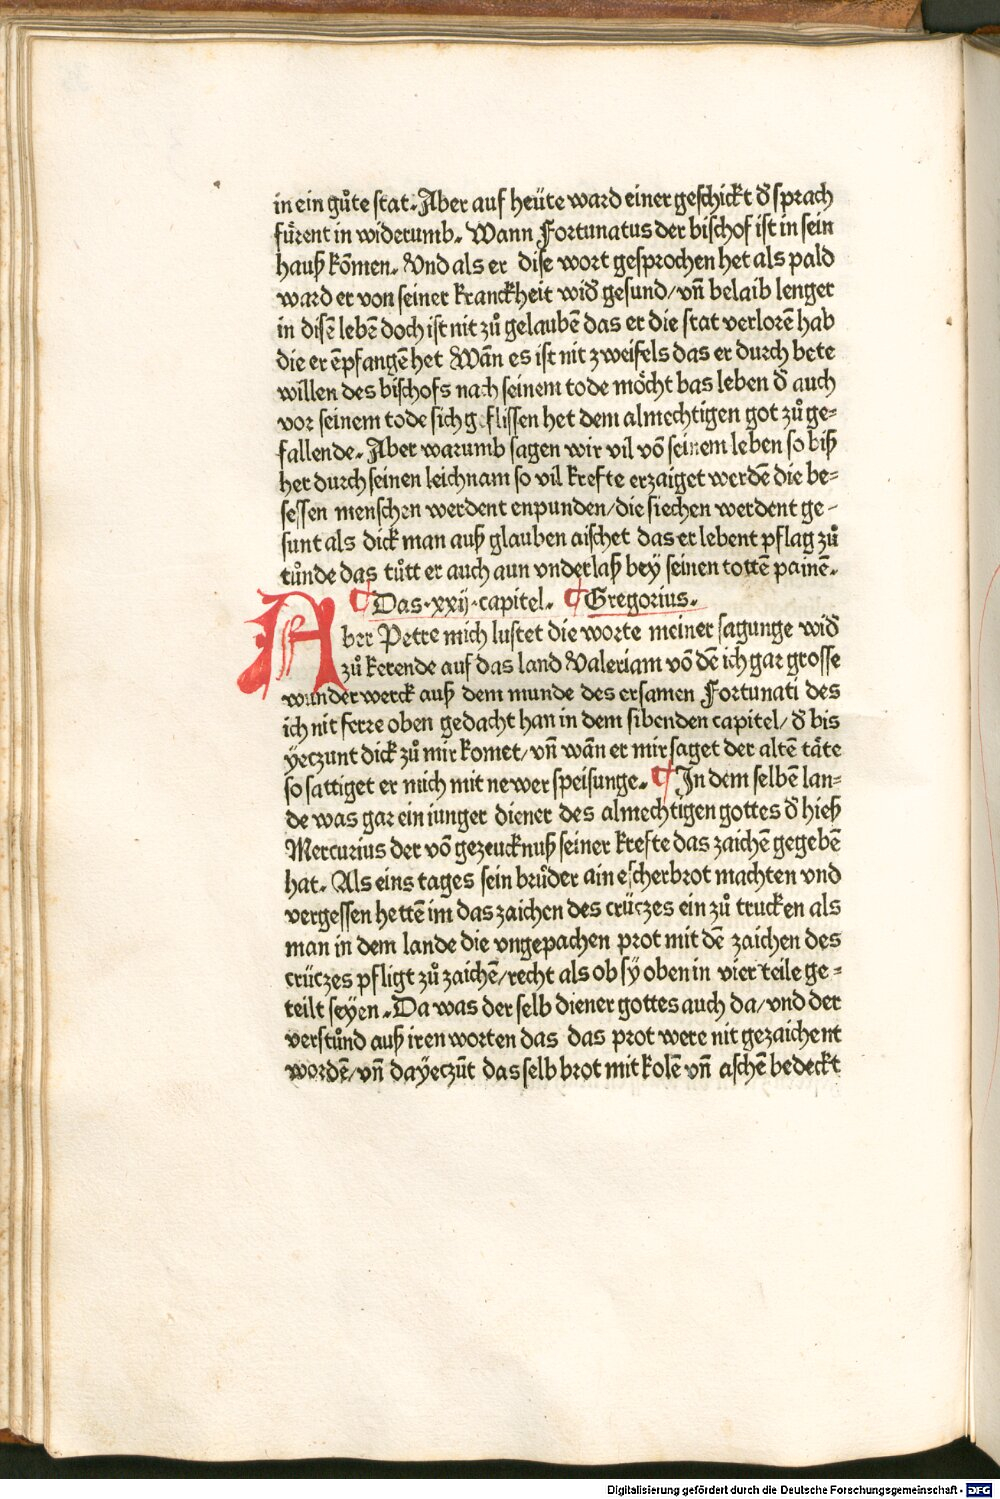 in ein gůte stat. Aber auf heüte ward einer geschickt d̄ sprach
fůrent in widerumb. Wann Fortunatus der bischof ist in sein
hauß kōmen. Vnd als er dise wort gesprochen het als pald
ward er von seiner kranckheit wid̄ gesund/ vn̄ belaib lenger
in disē lebē doch ist nit zů gelaubē das er die stat verlorē hab
die er ēpfangē het Wān es ist nit zweifels das er durch bete
willen des bischofs nach seinem tode mo̊cht bas leben d̄ auch
vor seinem tode sich geflissen het dem almechtigen got zů ge-
fallende. Aber warumb sagen wir vil vō seinem leben so biß
her durch seinen leichnam so vil krefte erzaiget werdē die be-
sessen menschen werdent enpunden/ die siechen werdent ge-
sunt als dick man auß glauben aischet das er lebent pflag zů
tůnde das tůtt er auch aun vnderlaß bey seinen tottē painē.
¶ Das .xxij. capitel. ¶ Gregorius.
Aber Petre mich lustet die worte meiner sagunge wid̄
zů kerende auf das land Valeriam vō dē ich gar grosse
wunderwerck auß dem munde des ersamen Fortunati des
ich nit ferre oben gedacht han in dem sibenden capitel/ d̄ bis
yeczunt dick zů mir komet/ vn̄ wān er mir saget der altē täte
so sattiget er mich mit newer speisunge. ¶ In dem selbē lan-
de was gar ein iunger diener des almechtigen gottes d̄ hieß
Mercurius der vō gezeucknuß seiner krefte das zaichē gegebē
hat. Als eins tages sein brůder ain escherbrot machten vnd
vergessen hettē im das zaichen des crüczes ein zů trucken als
man in dem lande die vngepachen prot mit dē zaichen des
crüczes pfligt zů zaichē/ recht als ob sy oben in vier teile ge-
teilt seyen. Da was der selb diener gottes auch da/ vnd der
verstůnd auß iren worten das das prot were nit gezaichent
wordē/ vn̄ da yeczūt das selb brot mit kolē vn̄ aschē bedeckt
Digitalisierung gefördert durch die Deutsche Forschungsgemeinschaft - DFG